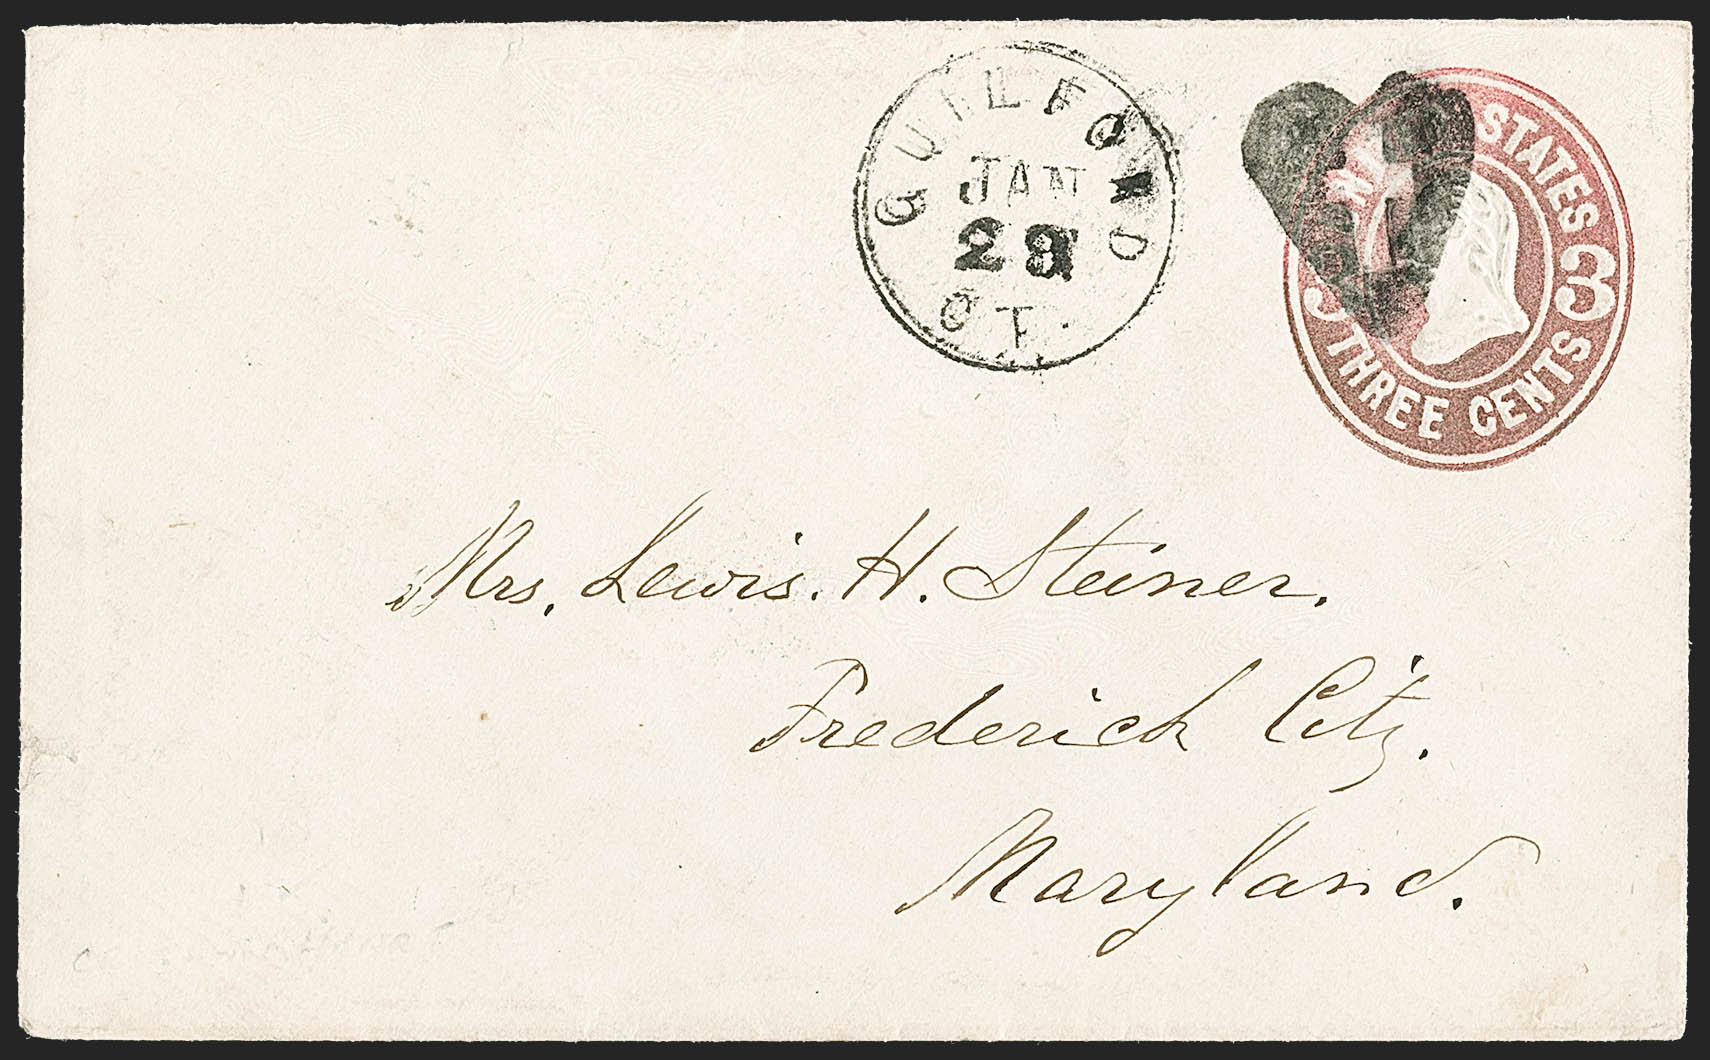 GUILFORD
JAN
23
CT.
UNITED STATES
3 3
THREE CENTS
Mrs. Lewis. H. Steiner.
Frederick City.
Maryland.